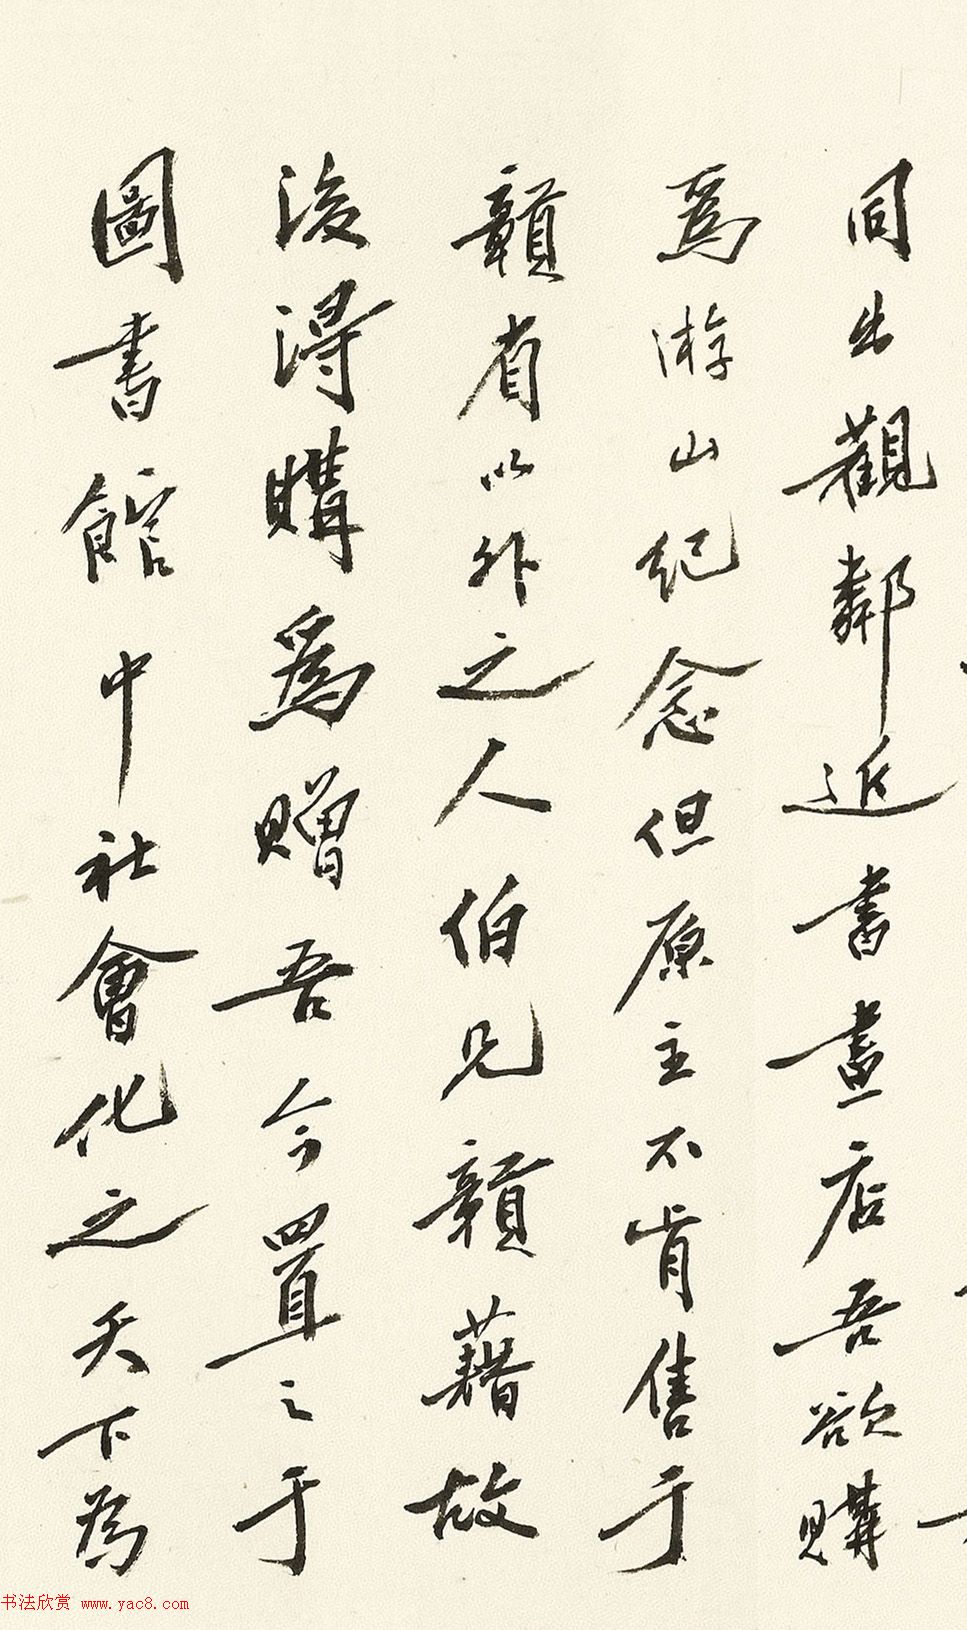 同出觀鄰近書畫店吾欲購
爲游山紀念但原主不肯售于
贛省以外之人伯兄贛藉故
後得購爲贈吾今置之于
圖書館中社會化之天下為
书法欣赏 www.yac8.com